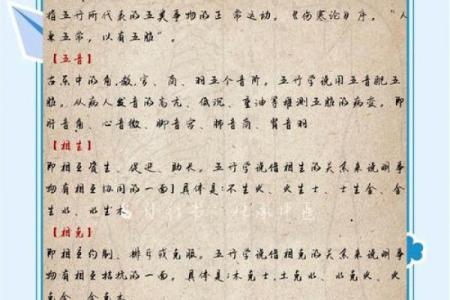 指五行所代表的五类事物的正常运动。《伤寒论》序，"人
五常，以有五脏"。
【五音】
古乐中的角、徵、宫、商、羽五个音阶。五行学说用五音配五
脏，从病人发音的高亢、低沉、重浊等推测五脏的病变。即
肝音角、心音徵、脾音宫、肺音商、肾音羽
【相生】
即相互资生、促进、助长。五行学说借相生的关系来说明事
物有相互协同的一面】具体是：木生火、火生土、土生金、金
生水、水生木
【相克】
即相互约制、排斥或克服。五行学说借相克的关系来说明事
物有相互拮抗的一面。具体是：木克土，土克水、水克火、火
克金、金克木